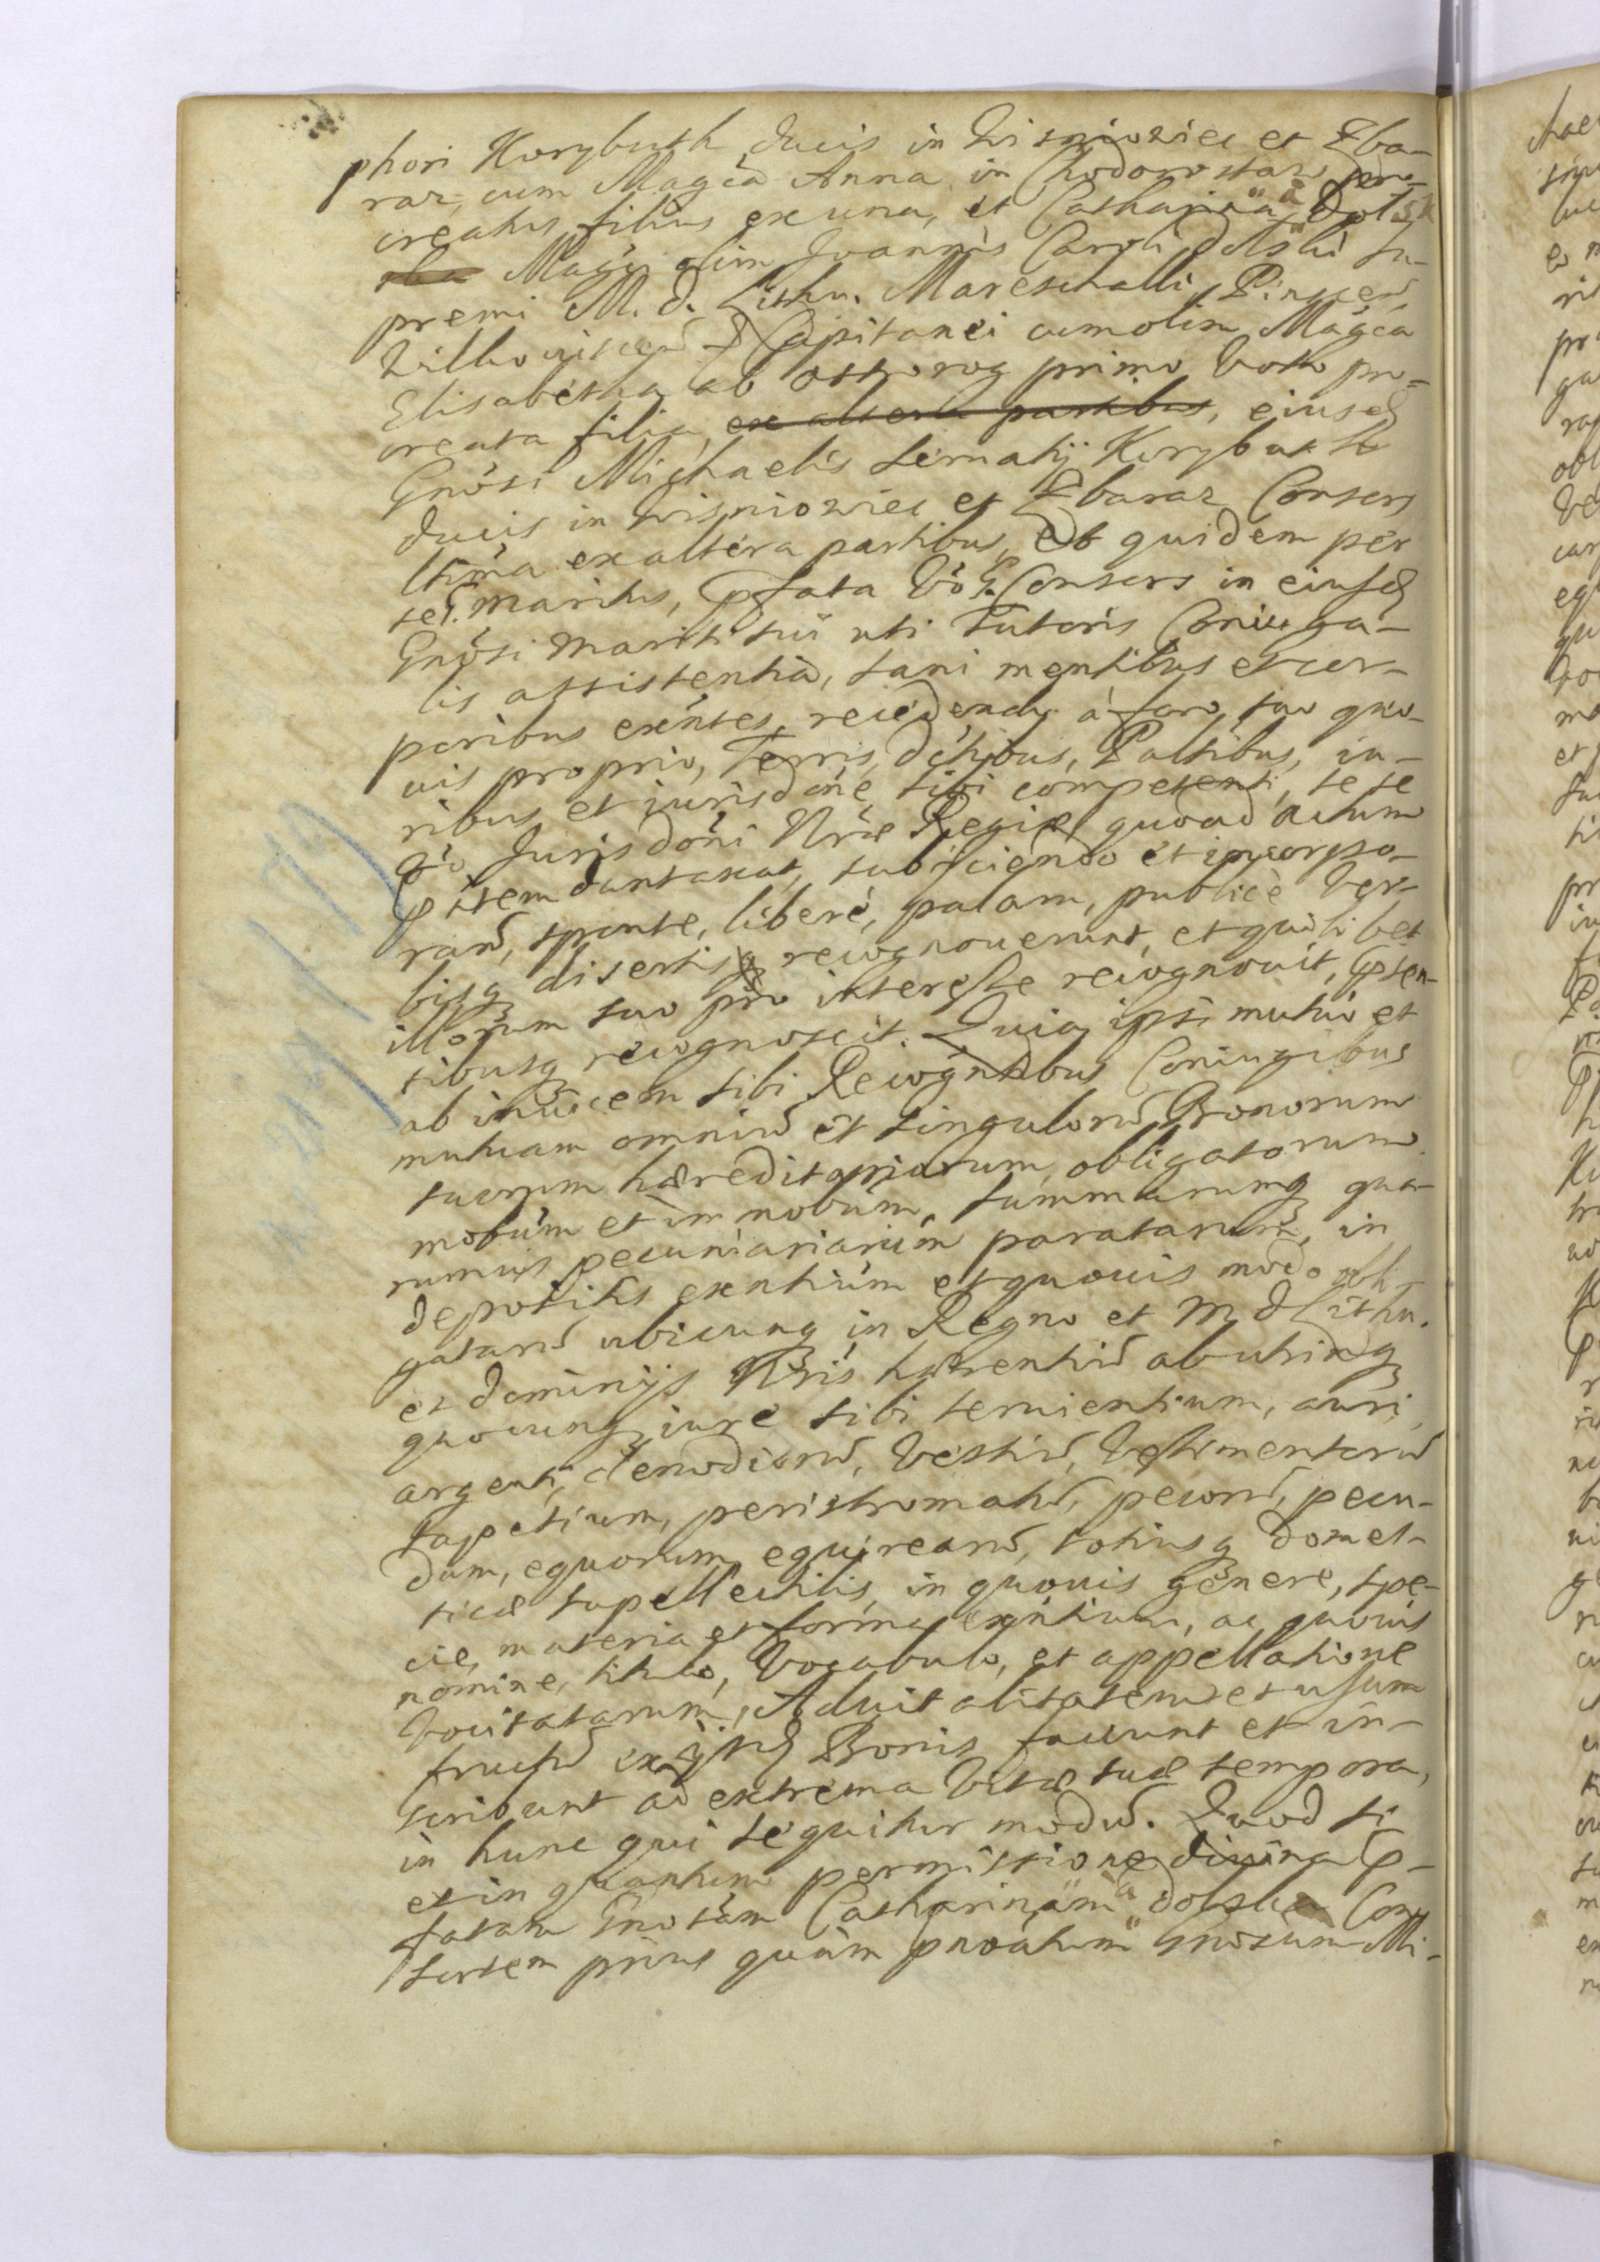 phori Korybuth Ducis in Wisniowiec et Zba-
raz, cum Magcã Anna in Chodorostaw
creatus filius ex una, et Catharina à Dolsk
Magci olim Joannis Caroli Dolski Su-
premi M. D. Lithu. Mareschalli, Pinscen
Wilkouiscen & Capitanei cum olim Magca
Elisabetha ab Ostrorog primo Voto pro-
creata filia, ex altera partibus, eiusd
Gnosi Michaelis Seruatij Korybuth
Ducis in Wisniowiec et Zbaraz Consors
ltima ex altera partibus, Et quidem per
sel. Maritus, pfata Vo G. Consors in eiusd
Gnosi Mariti sui uti Tutoris Coniuga-
lis assistentia, sani mentibus et cor-
poribus exntes, recedendo à foro suo quo-
uis proprio, Terris, Dctibus, Paltibus, iu-
ribus et iurisdone sibi competenti, se se
Jurisdoni Nrae Regiae quoad actum
pntem duntaxat, subijciendo et incorpo-
rand, sponte, liberè, palam, publicè Ver-
bisq disertis recognouerunt, et quilibet
illorum suo pro interesse recognouit, psen-
tibusq recognoscit. Quia ipsi mutuò et
ab inuicem sibi Recogntibus Coniugibus
mutuam omniu et singuloru Bonorum
suorum haereditariorum, obligatorum
mobum et immobum, summarumq qua-
rumuis pecuniariarum paratarum, in
depositis exntium et quouis modo obli-
gataru ubicunq in Regno et M D Lithu.
et Dominijs Nris haerentiu ab utrinq
quocunq iure sibi seruientium, auri
argenti, clenodioru, Vestiu, Vestimentoru
tapetium, peristromatu, pecoru, pecu-
dum, equorum, equirearu, totiusq domes-
ticae supellectilis, in quouis genere, spe-
cie, materia et forma exntium, ac quouis
nomine, titulo, Vocabulo, et appellatione
Vocitatarum, Aduitalitatem et usum
fructu ex ijsd Bonis faciunt et in-
scribunt ad extrema Vitae suae tempora,
in hunc qui sequitur modu. Quod si
et in quantum permissione diuina p-
fatam Gnosam Catharinam à Dolska Con-
sortem prius quàm pnoatum Gnosum Mi-